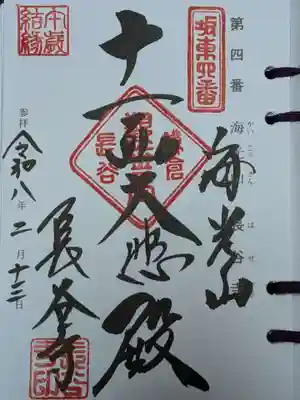 第四番 海光山 長谷寺
かいこうざん はせ
坂東四番
海光山
十一面大悲殿
鎌倉
長谷
午歳
結縁
参拝
令和八年二月十三日
長谷寺